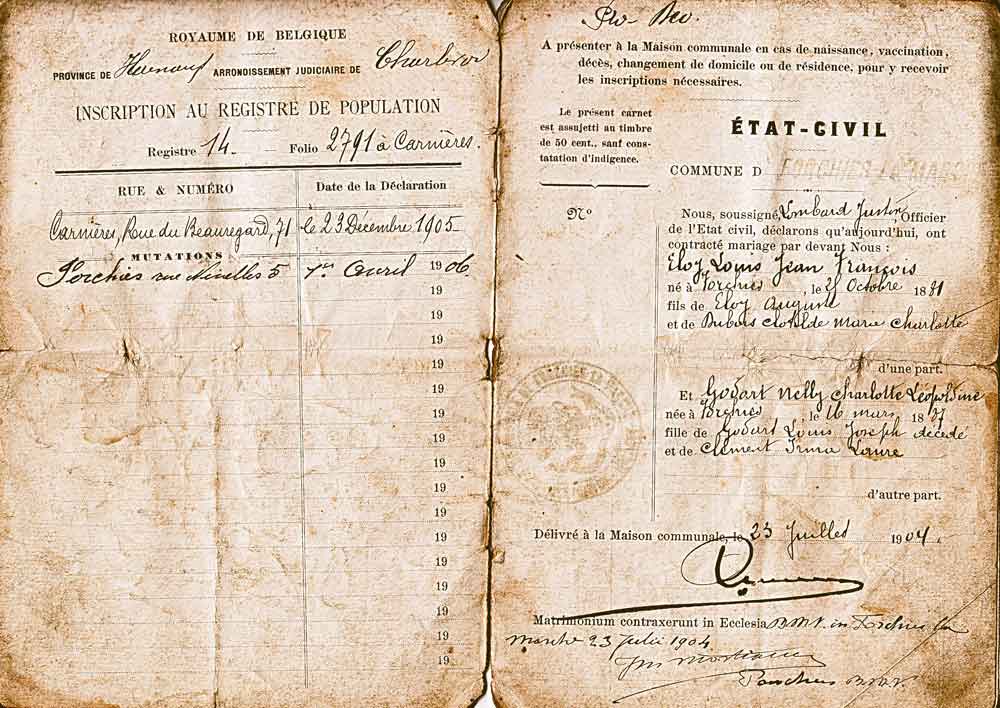 ROYAUME DE BELGIQUE
PROVINCE DE Hainaut ARRONDISSEMENT JUDICIAIRE DE Charleroi
INSCRIPTION AU REGISTRE DE POPULATION
Registre 14 Folio 2791 à Carnières.
RUE & NUMÉRO Date de la Déclaration
Carnières, Rue du Beauregard, 71 le 23 Décembre 1905
MUTATIONS
Forchies rue Nivelles 5 1er Avril 1906
19
19
19
19
19
19
19
19
19
19
19
19
19
19
19
19
A présenter à la Maison communale en cas de naissance, vaccination,
décès, changement de domicile ou de résidence, pour y recevoir
les inscriptions nécessaires.
Le présent carnet
est assujetti au timbre
de 50 cent., sauf cons-
tatation d'indigence.
ÉTAT-CIVIL
COMMUNE D FORCHIES-LA-MARCHE
No
Nous, soussigné, Lombard Justin Officier
de l'Etat civil, déclarons qu'aujourd'hui, ont
contracté mariage par devant Nous :
Eloy Louis Jean François
né à Forchies, le 21 Octobre 1881
fils de Eloy Auguste
et de Dubois Clotilde Marie Charlotte
d'une part.
Et Godart Nelly Charlotte Léopoldine
née à Forchies, le 16 mars 1887
fille de Godart Louis Joseph décédé
et de Clément Irma Laure
d'autre part.
Délivré à la Maison communale, le 23 Juillet 1904.
Matrimonium contraxerunt in Ecclesia B.M.V. in Forchies la
Marche 23 julii 1904